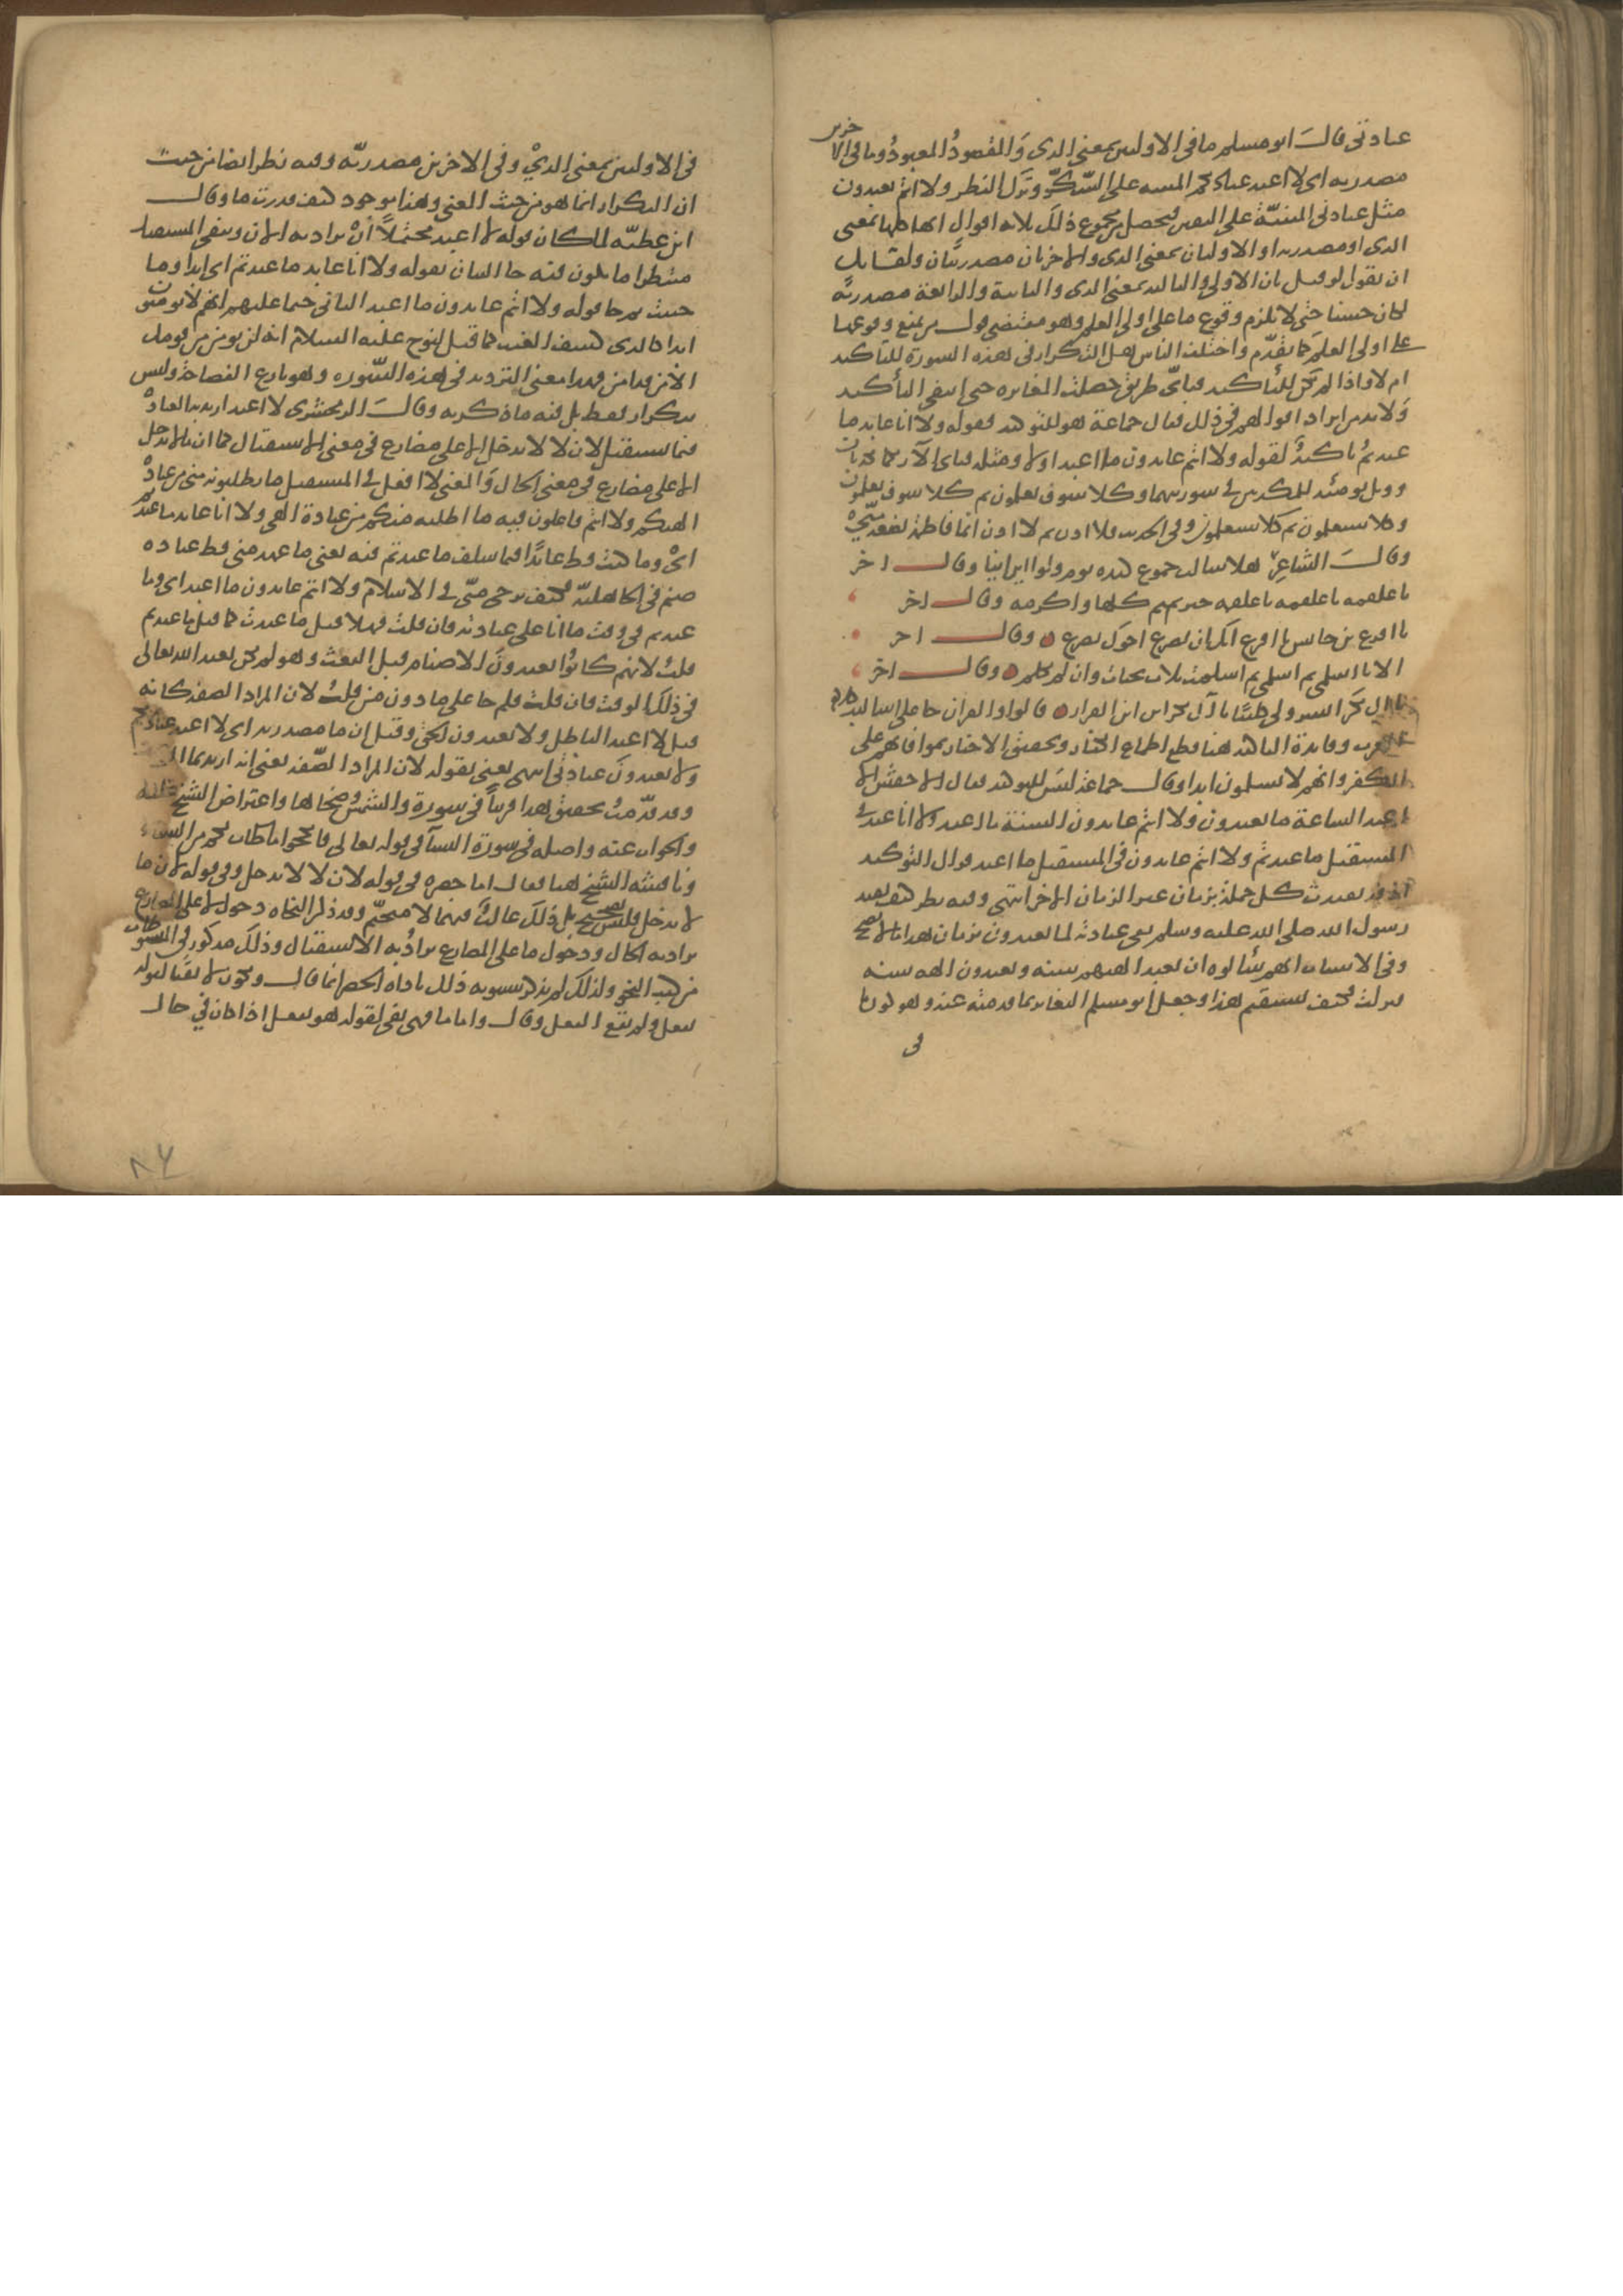 عبادتي قال ابو مسلم ما في الاولين بمعنى الذي والمقصود المعبود وما في الاخرين
مصدريه اي لا اعبد عبادتكم المبنيه على الشك وترك النظر ولا انتم تعبدون
مثل عبادتي المبنية على اليقين فيحصل من مجموع ذلك ثلاثه اقوال انها كلها بمعنى
الذي او مصدريه او الاوليان بمعنى الذي والاخريان مصدريتان ولقايل
ان يقول لو قيل بان الاولى والثالثه بمعنى الذي والثانية والرابعة مصدرية
لكان حسنا حتى لا يلزم وقوع ما على اولي العلم وهو مقتضى قول من يمنع وقوعها
على اولي العلم كما تقدم واختلف الناس هل التكرار في هذه السورة للتاكيد
ام لا واذا لم يكن للتأكيد فباي طريق حصلت المغايره حتى انتفى التأكيد
ولا بد من ايراد اقوالهم في ذلك فقال جماعة هو للتوكيد فقوله ولا انا عابد ما
عبدتم تاكيد لقوله ولا انتم عابدون ما اعبد اولا ومثله فباي الآ ربكما تكذبان
وويل يومئذ للمكذبين في سورتيهما وكلا سوف تعلمون ثم كلا سوف تعلمون
وكلا سيعلمون ثم كلا سيعلمون وفي الحديث فلا اذن ثم لا اذن انما فاطمة بضعة مني
وقال الشاعر هلا سالت جموع كنده يوم ولوا اين اينا وقال اخر
يا علقمه يا علقمه يا علقمه خير تميم كلها واكرمه وقال اخر
يا اقرع بن حابس يا اقرع انك ان يصرع اخوك تصرع وقال اخر
الا يا اسلمي ثم اسلمي ثمت اسلمي ثلاث تحيات وان لم تكلم وقال اخر
العرب وفايدة التاكيد هنا قطع اطماع الكفار وتحقيق الاخبار بموافاتهم على
الكفر وانهم لا يسلمون ابدا وقال جماعة ليس للتوكيد فقال الاخفش لا
اعبد الساعة ما تعبدون ولا انتم عابدون السنة ما اعبد ولا انا عابد في
المستقبل ما عبدتم ولا انتم عابدون في المستقبل ما اعبد فزال التوكيد
اذ قد تقيدت كل جملة بزمان غير الزمان الاخر انتهى وفيه نظر كيف يقيد
رسول الله صلى الله عليه وسلم نفي عبادته لما يعبدون بزمان هذا ما لا يصح
وفي الاسباب انهم سألوه ان يعبد الهتهم سنه ويعبدون الهه سنه
فنزلت فكيف يستقيم هذا وجعل ابو مسلم التغاير بما قدمته عنه وهو كون ما
في
في الاوليين بمعنى الذي وفي الاخريين مصدرية وفيه نظر ايضا من حيث
ان التكرار انما هو من حيث المعنى وهذا موجود كيف قدرت ما وقال
ابن عطية لما كان قوله لا اعبد محتملا أن يراد به الان ويبقى المستقبل
منتظرا ما يكون فيه جا البيان بقوله ولا انا عابد ما عبدتم اي ابدا وما
حييت ثم جا قوله ولا انتم عابدون ما اعبد الثاني حتما عليهم انهم لا يومنون
ابدا كالذي كشف الغيب كما قيل لنوح عليه السلام انه لن يومن من قومك
الا من قد امن فهذا معنى الترديد في هذه السوره وهو بارع الفصاحة وليس
بتكرار فقط بل فيه ما ذكرته وقال الزمخشري لا اعبد اريد به العبادة
فيما يستقبل لان لا لا تدخل الا على مضارع في معنى الاستقبال كما ان ما لا تدخل
الا على مضارع في معنى الحال والمعنى لا افعل في المستقبل ما تطلبونه مني من عبادة
الهتكم ولا انتم فاعلون فيه ما اطلبه منكم من عبادة الهي ولا انا عابد ما عبدتم
اي وما كنت قط عابدا فيما سلف ما عبدتم فيه يعني ما عهد مني قط عباده
صنم في الجاهلية فكيف ترجى مني في الاسلام ولا انتم عابدون ما اعبد اي وما
عبدتم في وقت ما انا على عبادته فان قلت فهلا قيل ما عبدت كما قيل ما عبدتم
قلت لانهم كانوا يعبدون الاصنام قبل البعث وهو لم يكن يعبد الله تعالى
في ذلك الوقت فان قلت فلم جا على ما دون من قلت لان المراد الصفة كانه
قيل لا اعبد الباطل ولا تعبدون الحق وقيل ان ما مصدريه اي لا اعبد عبادتكم
ولا تعبدون عبادتي انتهى يعني بقوله لان المراد الصفة يعني انه اريد بما
وقد قدمت تحقيق هذا قريبا في سورة والشمس وضحاها واعتراض الشيخ عليه
والجواب عنه واصله في سورة النسآ في قوله تعالى فانكحوا ما طاب لكم من النساء
وناقشه الشيخ هنا فقال اما حصره في قوله لان لا لا تدخل وفي قوله لان ما
لا تدخل فليس بصحيح بل ذلك غالب فيهما لا متحتم وقد ذكر النحاه دخول لا على المضارع
يراد به الحال ودخول ما على المضارع يراد به الاستقبال وذلك مذكور في المبسوطات
من كتب النحو ولذلك لم يذكر سيبويه ذلك باداه الحصر انما قال وتكون لا نفيا لقوله
يفعل ولم يقع الفعل وقال واما ما فهي نفي لقوله هو يفعل اذا كان في حال